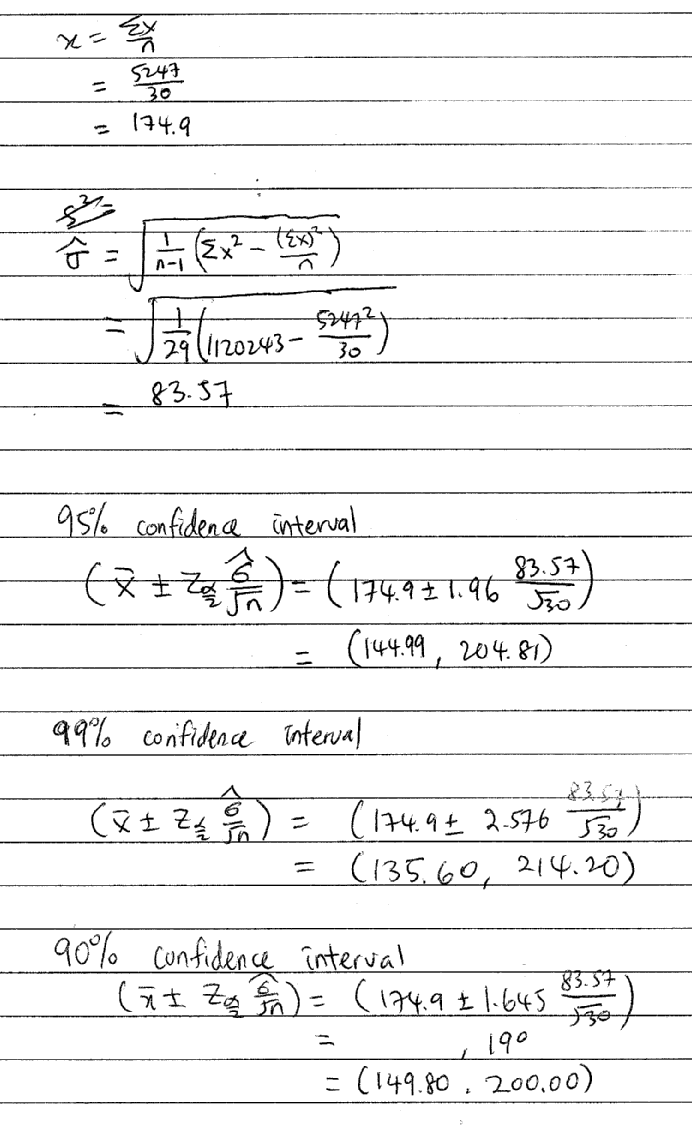 x = Σx/n
= 5247/30
= 174.9
s²=
σ̂ = √(1/(n-1) (Σx² - (Σx)²/n))
= √(1/29 (1120243 - 5247²/30))
= 83.57
95% confidence interval
(x̄ ± Zα/2 σ̂/√n) = (174.9 ± 1.96 83.57/√30)
= (144.99, 204.81)
99% confidence interval
(x̄ ± Zα/2 σ̂/√n) = (174.9 ± 2.576 83.57/√30)
= (135.60, 214.20)
90% confidence interval
(x̄ ± Zα/2 σ̂/√n) = (174.9 ± 1.645 83.57/√30)
= , 190
= (149.80, 200.00)